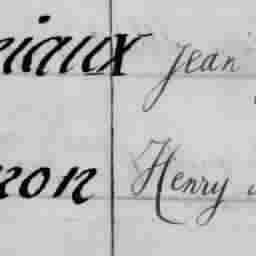 riaux Jean
non Henry